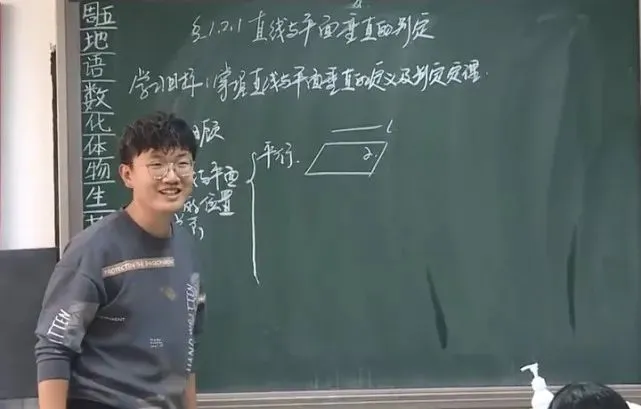 周五
地
语
数
化
体
物
生
§1.2.1 直线与平面垂直的判定
学习目标:掌握直线与平面垂直的定义及判定定理.
顾
与平面
的位置
平行.
l
α